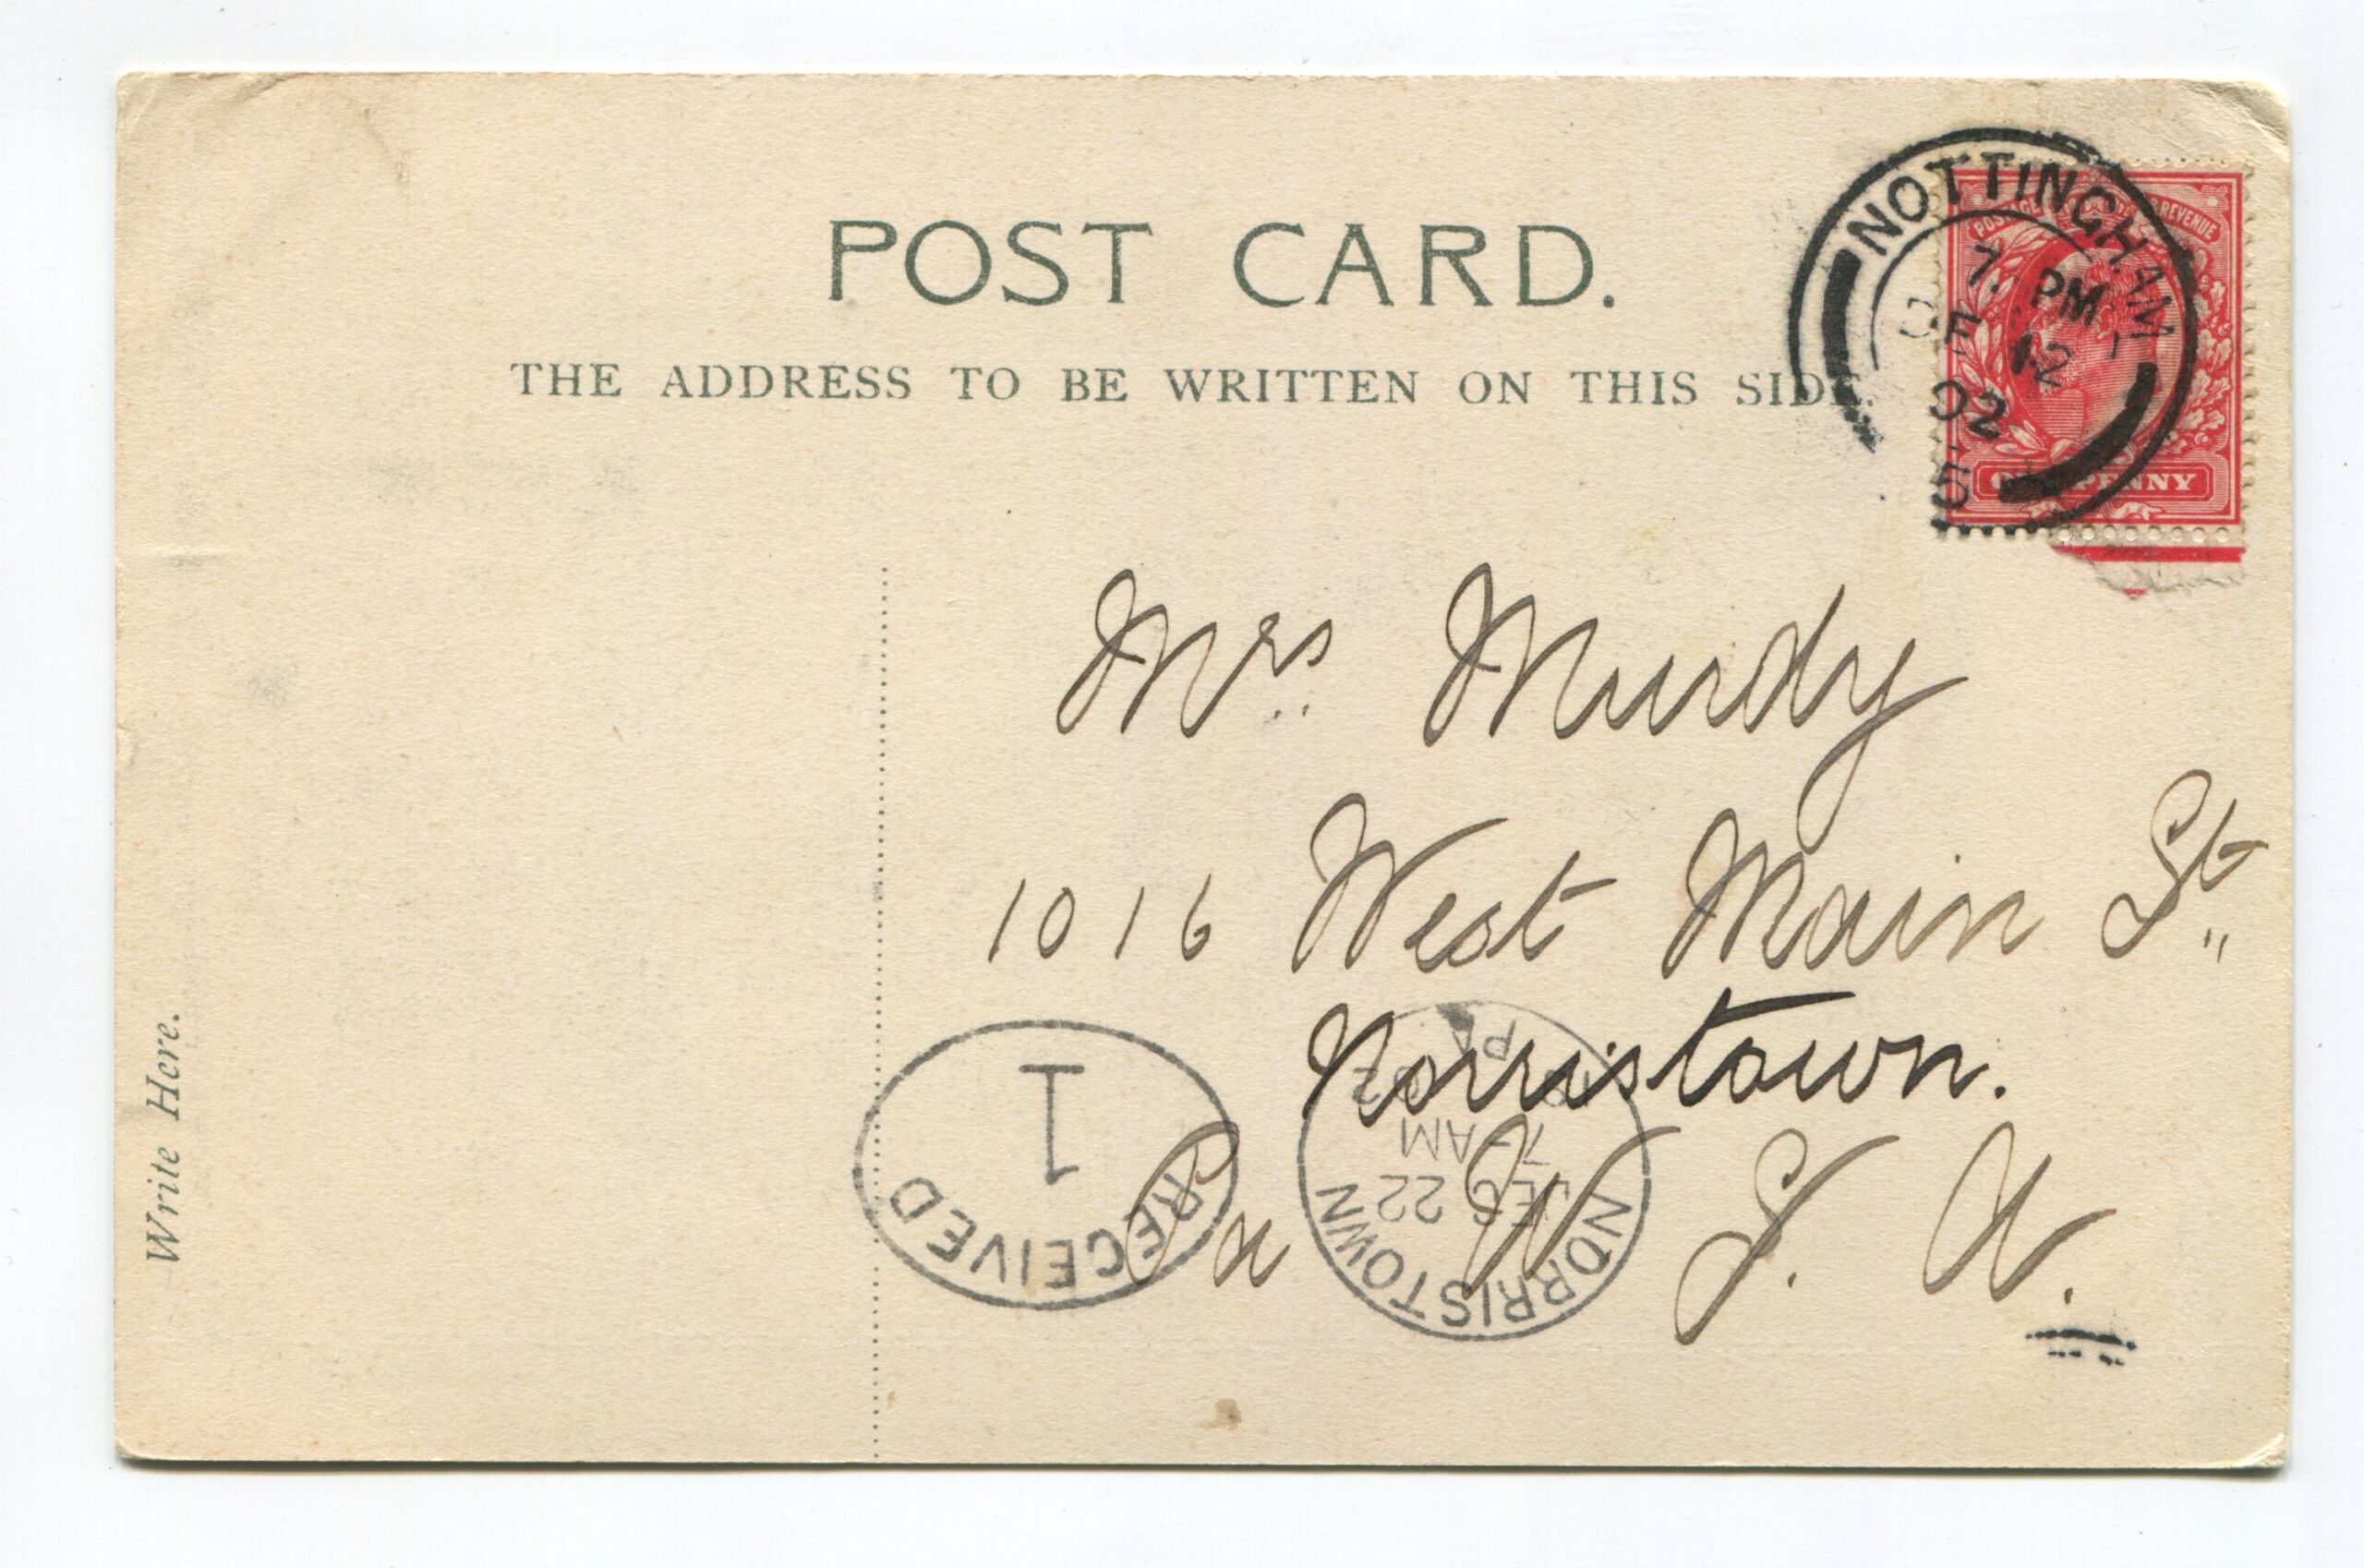 POST CARD.
THE ADDRESS TO BE WRITTEN ON THIS SIDE.
NOTTINGHAM
7. PM
DE 12
02
POSTAGE REVENUE
ONE PENNY
Mrs Murdy
1016 West Main St
Norristown.
Pa U S. A.
Write Here.
RECEIVED
1
NORRISTOWN
DEC 22
7-AM
PA